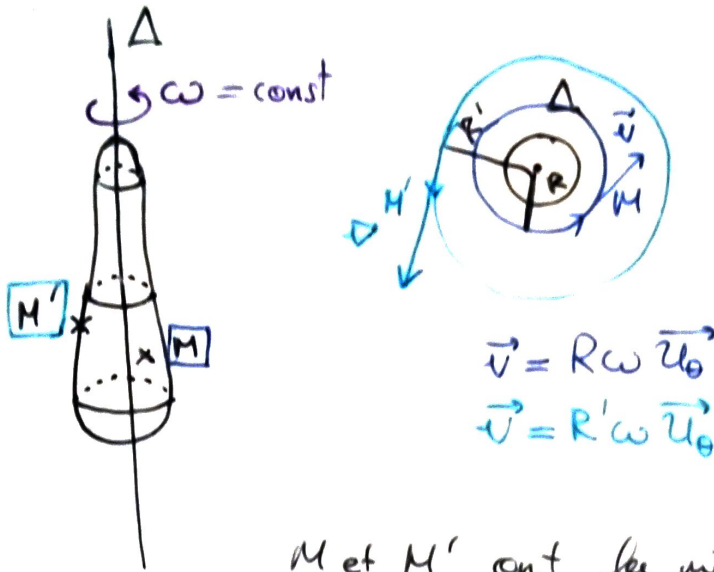 Δ
ω = const
M'
M
Δ
R'
R
v⃗
M
M'
v⃗ = Rω u⃗θ
v⃗ = R'ω u⃗θ
M et M' ont